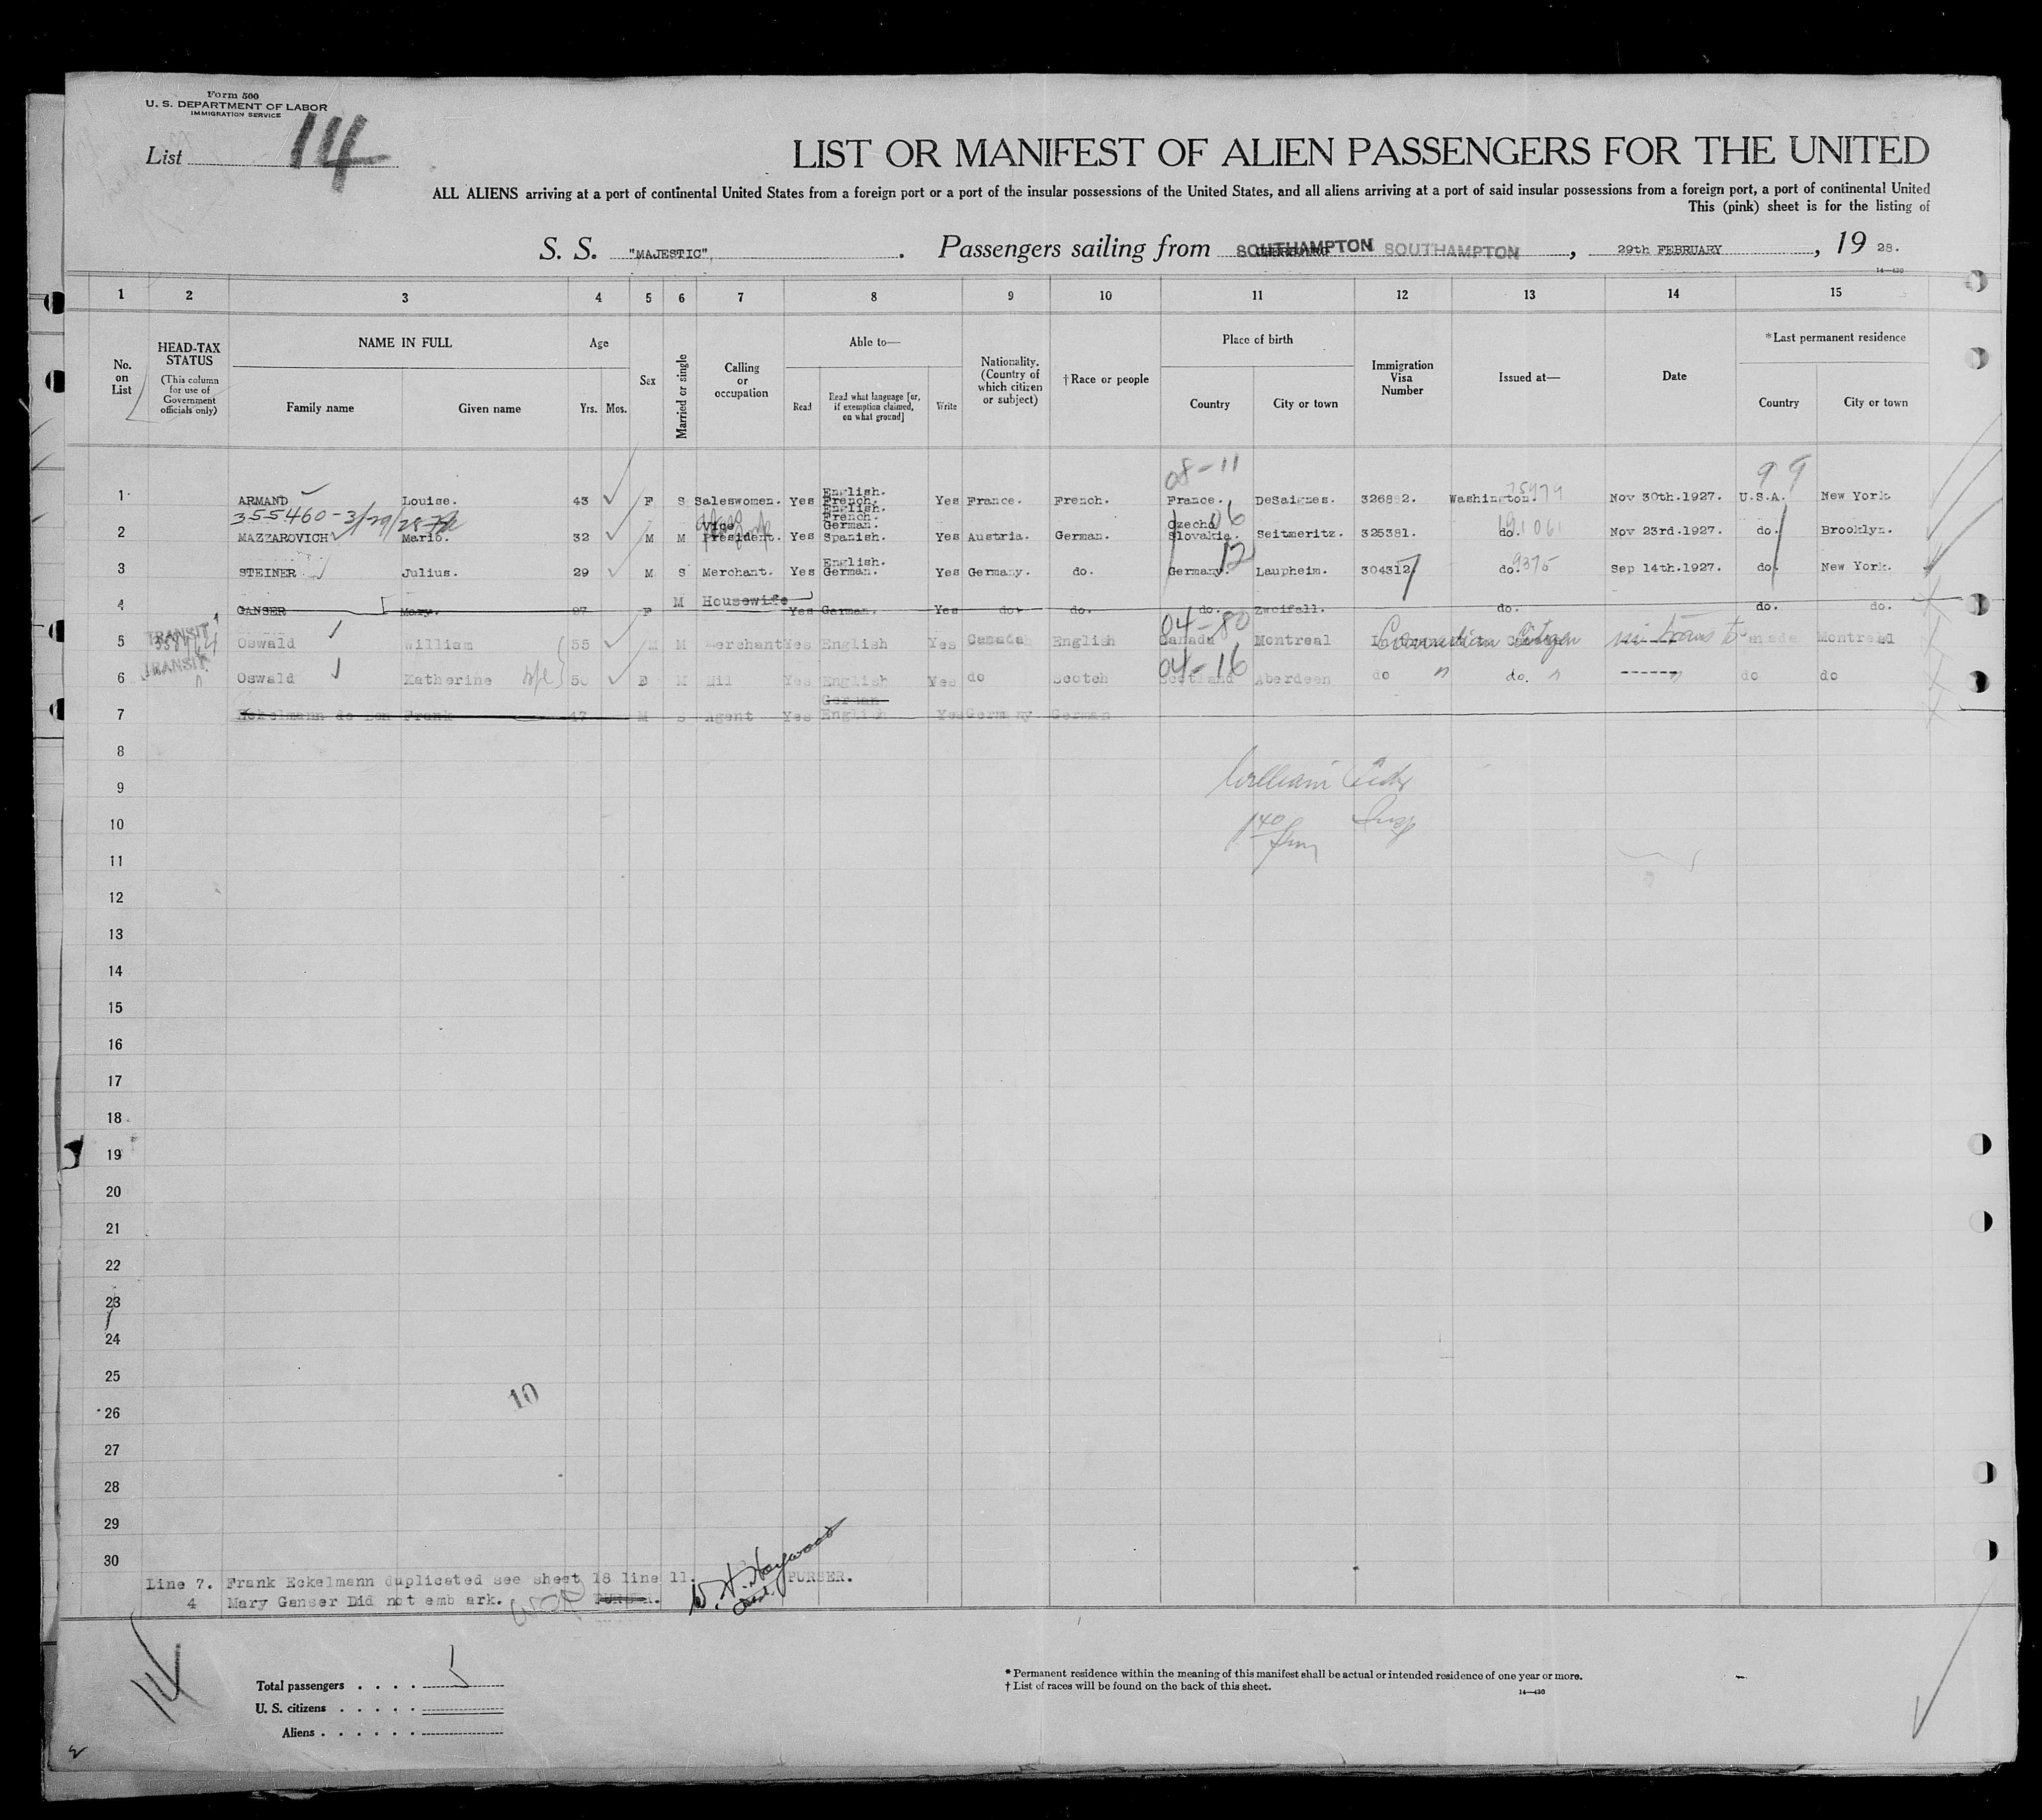 Form 500
U. S. DEPARTMENT OF LABOR
IMMIGRATION SERVICE
List 14
LIST OR MANIFEST OF ALIEN PASSENGERS FOR THE UNITED
ALL ALIENS arriving at a port of continental United States from a foreign port or a port of the insular possessions of the United States, and all aliens arriving at a port of said insular possessions from a foreign port, a port of continental United
This (pink) sheet is for the listing of
S. S. "MAJESTIC", . Passengers sailing from SOUTHAMPTON SOUTHAMPTON , 29th FEBRUARY , 19 28.
14—430
1 2 3 4 5 6 7 8 9 10 11 12 13 14 15
No. on List
HEAD-TAX STATUS (This column for use of Government officials only)
NAME IN FULL
Family name Given name
Age
Yrs. Mos.
Sex
Married or single
Calling or occupation
Able to—
Read
Read what language [or, if exemption claimed, on what ground]
Write
Nationality. (Country of which citizen or subject)
†Race or people
Place of birth
Country City or town
Immigration Visa Number
Issued at—
Date
*Last permanent residence
Country City or town
08-11 99
1 ARMAND Louise. 43 F S Saleswomen. Yes English. French. Yes France. French. France. DeSaignes. 326892. Washington. Nov 30th.1927. U.S.A. New York.
355460-3/29/28
2 MAZZAROVICH Mario. 32 M M Vice President. Yes English. French. German. Spanish. Yes Austria. German. Czecho Slovakia. 06 Seitmeritz. 325381. do. Nov 23rd.1927. do. Brooklyn.
3 STEINER Julius. 29 M S Merchant. Yes English. German. Yes Germany. do. Germany. 12 Laupheim. 304312. do. 9375 Sep 14th.1927. do. New York.
4 GANSER Mary. F M Housewife Yes German. Yes do. do. do. Zweifall. do. do. do.
04-80
5 TRANSIT Oswald William 55 M M Merchant Yes English Yes Canada English Canada Montreal Canadian Citizen in trans to Canada Montreal
04-16
6 TRANSIT Oswald Katherine wife 50 F M Nil Yes English Yes do Scotch Scotland Aberdeen do " do. " ------ " do do
7 Frank 47 M S Agent Yes German English Yes Germany German
8
9 William
10 Insp
11
12
13
14
15
16
17
18
19
20
21
22
23
24
25
10
26
27
28
29
30
Line 7. Frank Eckelmann duplicated see sheet 18 line 11. W. H. Haywood PURSER.
4 Mary Ganser Did not emb ark.
14
Total passengers . . . . 5
U. S. citizens . . . . .
Aliens . . . . . .
* Permanent residence within the meaning of this manifest shall be actual or intended residence of one year or more.
† List of races will be found on the back of this sheet.
14—430